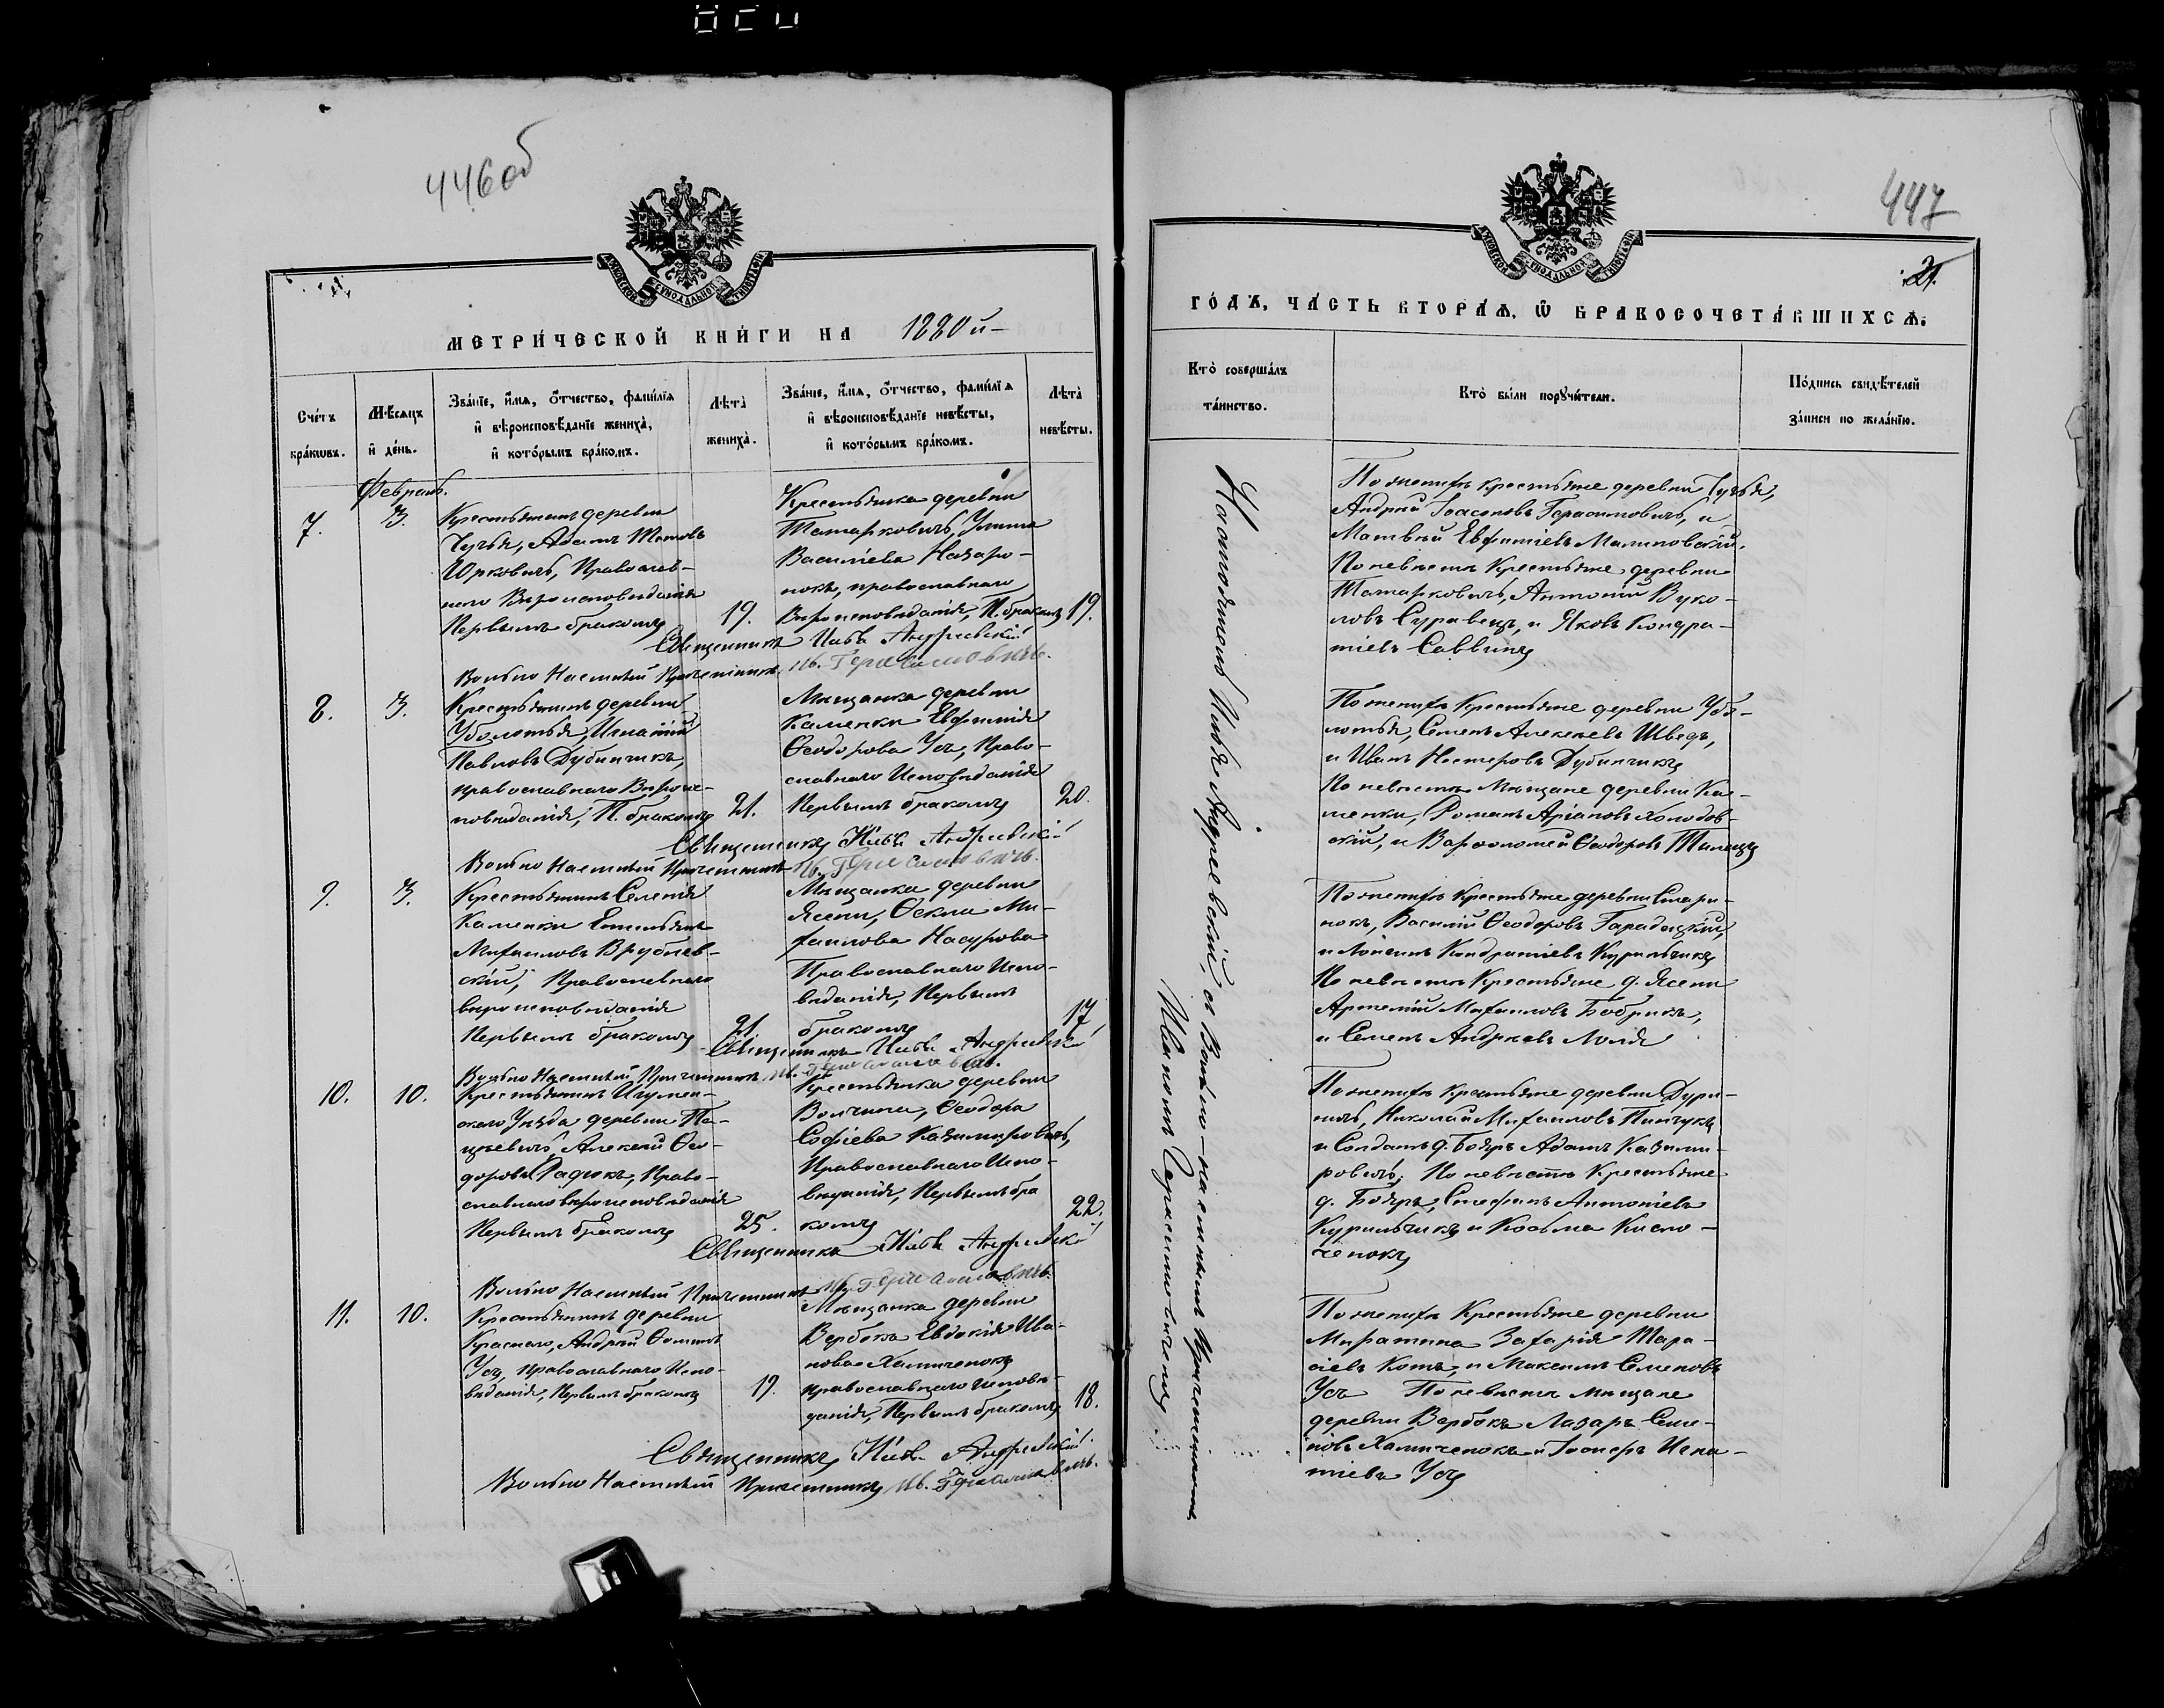 446об
МЕТРИ́ЧЕСКОЙ КНИ́ГИ НА 1880й
Сче́тъ бра́кωвъ.
Мѣ́сяцъ и҆ де́нь.
Зва́нїе, и҆́мѧ, ѻ҆́тчество, фами́лїѧ
и҆ вѣроисповѣ́данїе жениха̀,
и҆ кото́рымъ бра́комъ.
Лѣта̀ жениха̀.
Зва́нїе, и҆́мѧ, ѻ҆́тчество, фами́лїѧ
и҆ вѣроисповѣ́данїе невѣ́сты,
и҆ кото́рымъ бра́комъ.
Лѣта̀ невѣ́сты.
Февраль.
7.
3.
Крестьянинъ деревни
Адамъ
Юрковичъ, Православ-
наго Вѣроисповѣданія
Первымъ бракомъ
19.
Крестьянка деревни
Татарковичъ, Улита
Василіева Назаро-
нокъ, православнаго
Вѣроисповѣданія, П. бракомъ
19.
Священникъ Андріевскій
Вольно Наемный Причетникъ Ив. Герасимовичъ.
8.
3.
Крестьянинъ деревни
Уболотья, Игнатій
Павловъ Дубинчикъ,
православнаго Вѣроис-
повѣданія, П. бракомъ
21.
Мѣщанка деревни
Каменки Евфимія
Ѳеодорова Усъ, Право-
славнаго Исповѣданія
Первымъ бракомъ
20.
Священникъ Андріевскій
Вольно Наемный Причетникъ Ив. Герасимовичъ.
9.
3.
Крестьянинъ Селенія
Каменки Емельянъ
Михаиловъ Врублев-
скій, Православнаго
вѣроисповѣданія
Первымъ бракомъ
21.
Мѣщанка деревни
Ясени, Ѳекла Ми-
хаилова
Православнаго Испо-
вѣданія, Первымъ
бракомъ
17.
Священникъ Андріевскій
Вольно Наемный Причетникъ Ив. Герасимовичъ.
10.
10.
Крестьянинъ Игумен-
скаго Уѣзда деревни
Алексѣй Ѳео-
доровъ Радюкъ, Право-
славнаго вѣроисповѣданія
Первымъ бракомъ
25.
Крестьянка деревни
Волчина, Ѳеодора
Софіева Казимировичъ,
Православнаго Испо-
вѣданія, Первымъ бра
комъ
22.
Священникъ Андріевскій
Вольно Наемный Причетникъ Ив. Герасимовичъ.
11.
10.
Крестьянинъ деревни
Краснаго, Андрей Ѳоминъ
Усъ, православнаго Испо-
вѣданія, Первымъ бракомъ
19.
Мѣщанка деревни
Вербокъ Евдокія Ива-
нова Халимченокъ
православнаго исповѣ-
данія, Первымъ бракомъ
18.
Священникъ Андріевскій
Вольно Наемный Причетникъ Ив. Герасимовичъ.
447
21.
ГО́ДЪ, ЧА́СТЬ ВТОРА́Ѧ, Ѽ БРАКОСОЧЕТА́ВШИХСѦ.
Кто̀ соверша́лъ та́инство.
Кто̀ бы́ли порꙋчи́тели.
По́дпись свидѣ́телей за́писи по жела́нїю.
Настоятель Андреевскій, съ Вольно-наемнымъ Причетникомъ
Иваномъ Герасимовичемъ
По женихѣ крестьяне деревни
Андрей Іоасоновъ Герасимовичъ, и
Матвѣй Евфиміевъ Малиновскій.
По невѣстѣ Крестьяне деревни
Татарковичъ, Антоній Вуко-
ловъ Суравецъ, и Яковъ Кондра-
тіевъ Саввинъ
По женихѣ Крестьяне деревни Убо-
лотья, Семенъ Алексѣевъ Шведъ,
и Иванъ Нестеровъ Дубинчикъ
По невѣстѣ Мѣщане деревни Ка-
менки, Романъ Аріановъ Холодов-
скій, и Варѳоломей Ѳеодоровъ
По женихѣ Крестьяне деревни Стари-
нокъ, Василій Ѳеодоровъ Гарадецкій,
и Логинъ Кондратіевъ Курильчикъ
По невѣстѣ Крестьяне д. Ясени
Артемій Михаиловъ Бобрикъ,
и Семенъ Андреевъ
По женихѣ крестьяне деревни Дури-
чъ, Николай Михаиловъ Пинчукъ
и Солдатъ д. Бояръ Адамъ Казими-
ровичъ, По невѣстѣ Крестьяне
д. Бояръ, Стефанъ Антоніевъ
Курильчикъ и Косьма Кисло-
ченокъ
По женихѣ Крестьяне деревни
Захарія Тара-
сіевъ Котъ, и Максимъ Семеновъ
Усъ По невѣстѣ мѣщане
деревни Вербокъ Лазарь Семе-
новъ Халимченокъ и Іосифъ Игна-
тіевъ Усъ